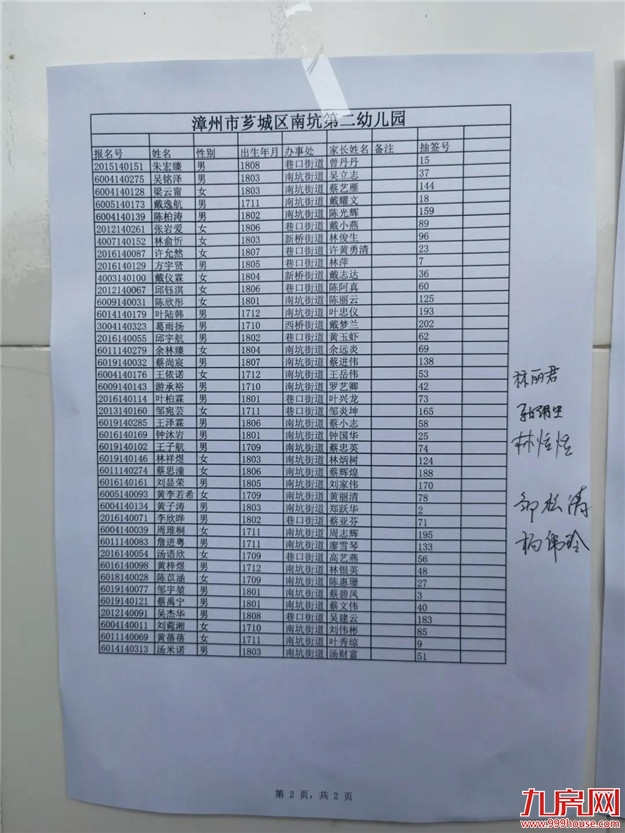 漳州市芗城区南坑第二幼儿园
报名号 姓名 性别 出生年月 办事处 家长姓名 备注 抽签号
2015140151 朱宏臻 男 1808 巷口街道 曾丹丹 15
6004140275 吴铭泽 男 1803 南坑街道 吴立志 37
6004140128 梁云甯 女 1803 南坑街道 蔡艺雁 144
6005140173 戴逸航 男 1711 南坑街道 戴耀文 18
6004140139 陈柏涛 男 1802 南坑街道 陈光辉 159
2012140261 张岩爱 女 1806 巷口街道 戴小燕 89
4007140152 林俞忻 女 1803 新桥街道 林俊生 96
2016140087 许允然 女 1807 巷口街道 许黄勇清 23
2016140129 方宇贤 男 1805 巷口街道 林萍 7
4003140100 戴仪霖 女 1804 新桥街道 戴志达 36
2012140067 邱钰淇 女 1806 巷口街道 陈阿真 60
6009140031 陈欣彤 女 1801 南坑街道 陈丽云 125
6014140179 叶陆韩 男 1712 南坑街道 叶忠仪 193
3004140323 葛雨扬 男 1710 西桥街道 戴梦兰 202
2016140055 邱宇航 男 1802 巷口街道 黄玉虾 62
6011140279 余林臻 女 1804 南坑街道 余远炎 69
6019140032 蔡尚宸 男 1807 南坑街道 蔡进伟 138
6004140176 王依诺 女 1712 南坑街道 王岳伟 53
6009140143 游承裕 男 1710 南坑街道 罗艺卿 42
2016140114 叶柏霖 男 1801 巷口街道 叶兴龙 73
2013140160 邹宛芸 女 1711 巷口街道 邹炎坤 165
6019140285 王泽霖 男 1806 南坑街道 蔡小志 58
6016140169 钟沐岩 男 1801 南坑街道 钟国华 25
6019140102 王子航 男 1709 南坑街道 蔡忠英 74
6019140146 林祥煜 男 1803 南坑街道 林炳树 124
6011140274 蔡思潼 女 1806 南坑街道 蔡辉煌 188
6016140161 刘显荣 男 1805 南坑街道 刘家伟 170
6005140093 黄李若希 女 1709 南坑街道 黄丽清 78
6004140134 黄子涛 男 1803 南坑街道 郑跃华 2
2016140071 李欣晔 男 1802 巷口街道 蔡亚芬 71
6004140039 周雅桐 女 1711 南坑街道 周志辉 195
6011140083 詹进粤 男 1711 南坑街道 廖雪琴 133
2016140054 汤语欣 女 1709 巷口街道 高艺燕 56
6016140098 黄梓煜 男 1712 南坑街道 林银英 48
6018140028 陈苡涵 女 1709 南坑街道 陈惠珊 27
6019140077 邹宇堃 男 1801 南坑街道 蔡碧凤 3
6019140121 蔡禹宁 男 1801 南坑街道 蔡文伟 40
2012140091 吴杰华 男 1808 巷口街道 吴建云 183
6004140011 刘菀湘 女 1710 南坑街道 刘伟彬 85
6011140069 黄蓓蓓 女 1711 南坑街道 叶秀琼 9
6014140313 汤米诺 男 1803 南坑街道 汤财富 51
林丽君
林恬恬
邹松涛
杨伟玲
第 2 页，共 2 页
九房网
www.999house.com